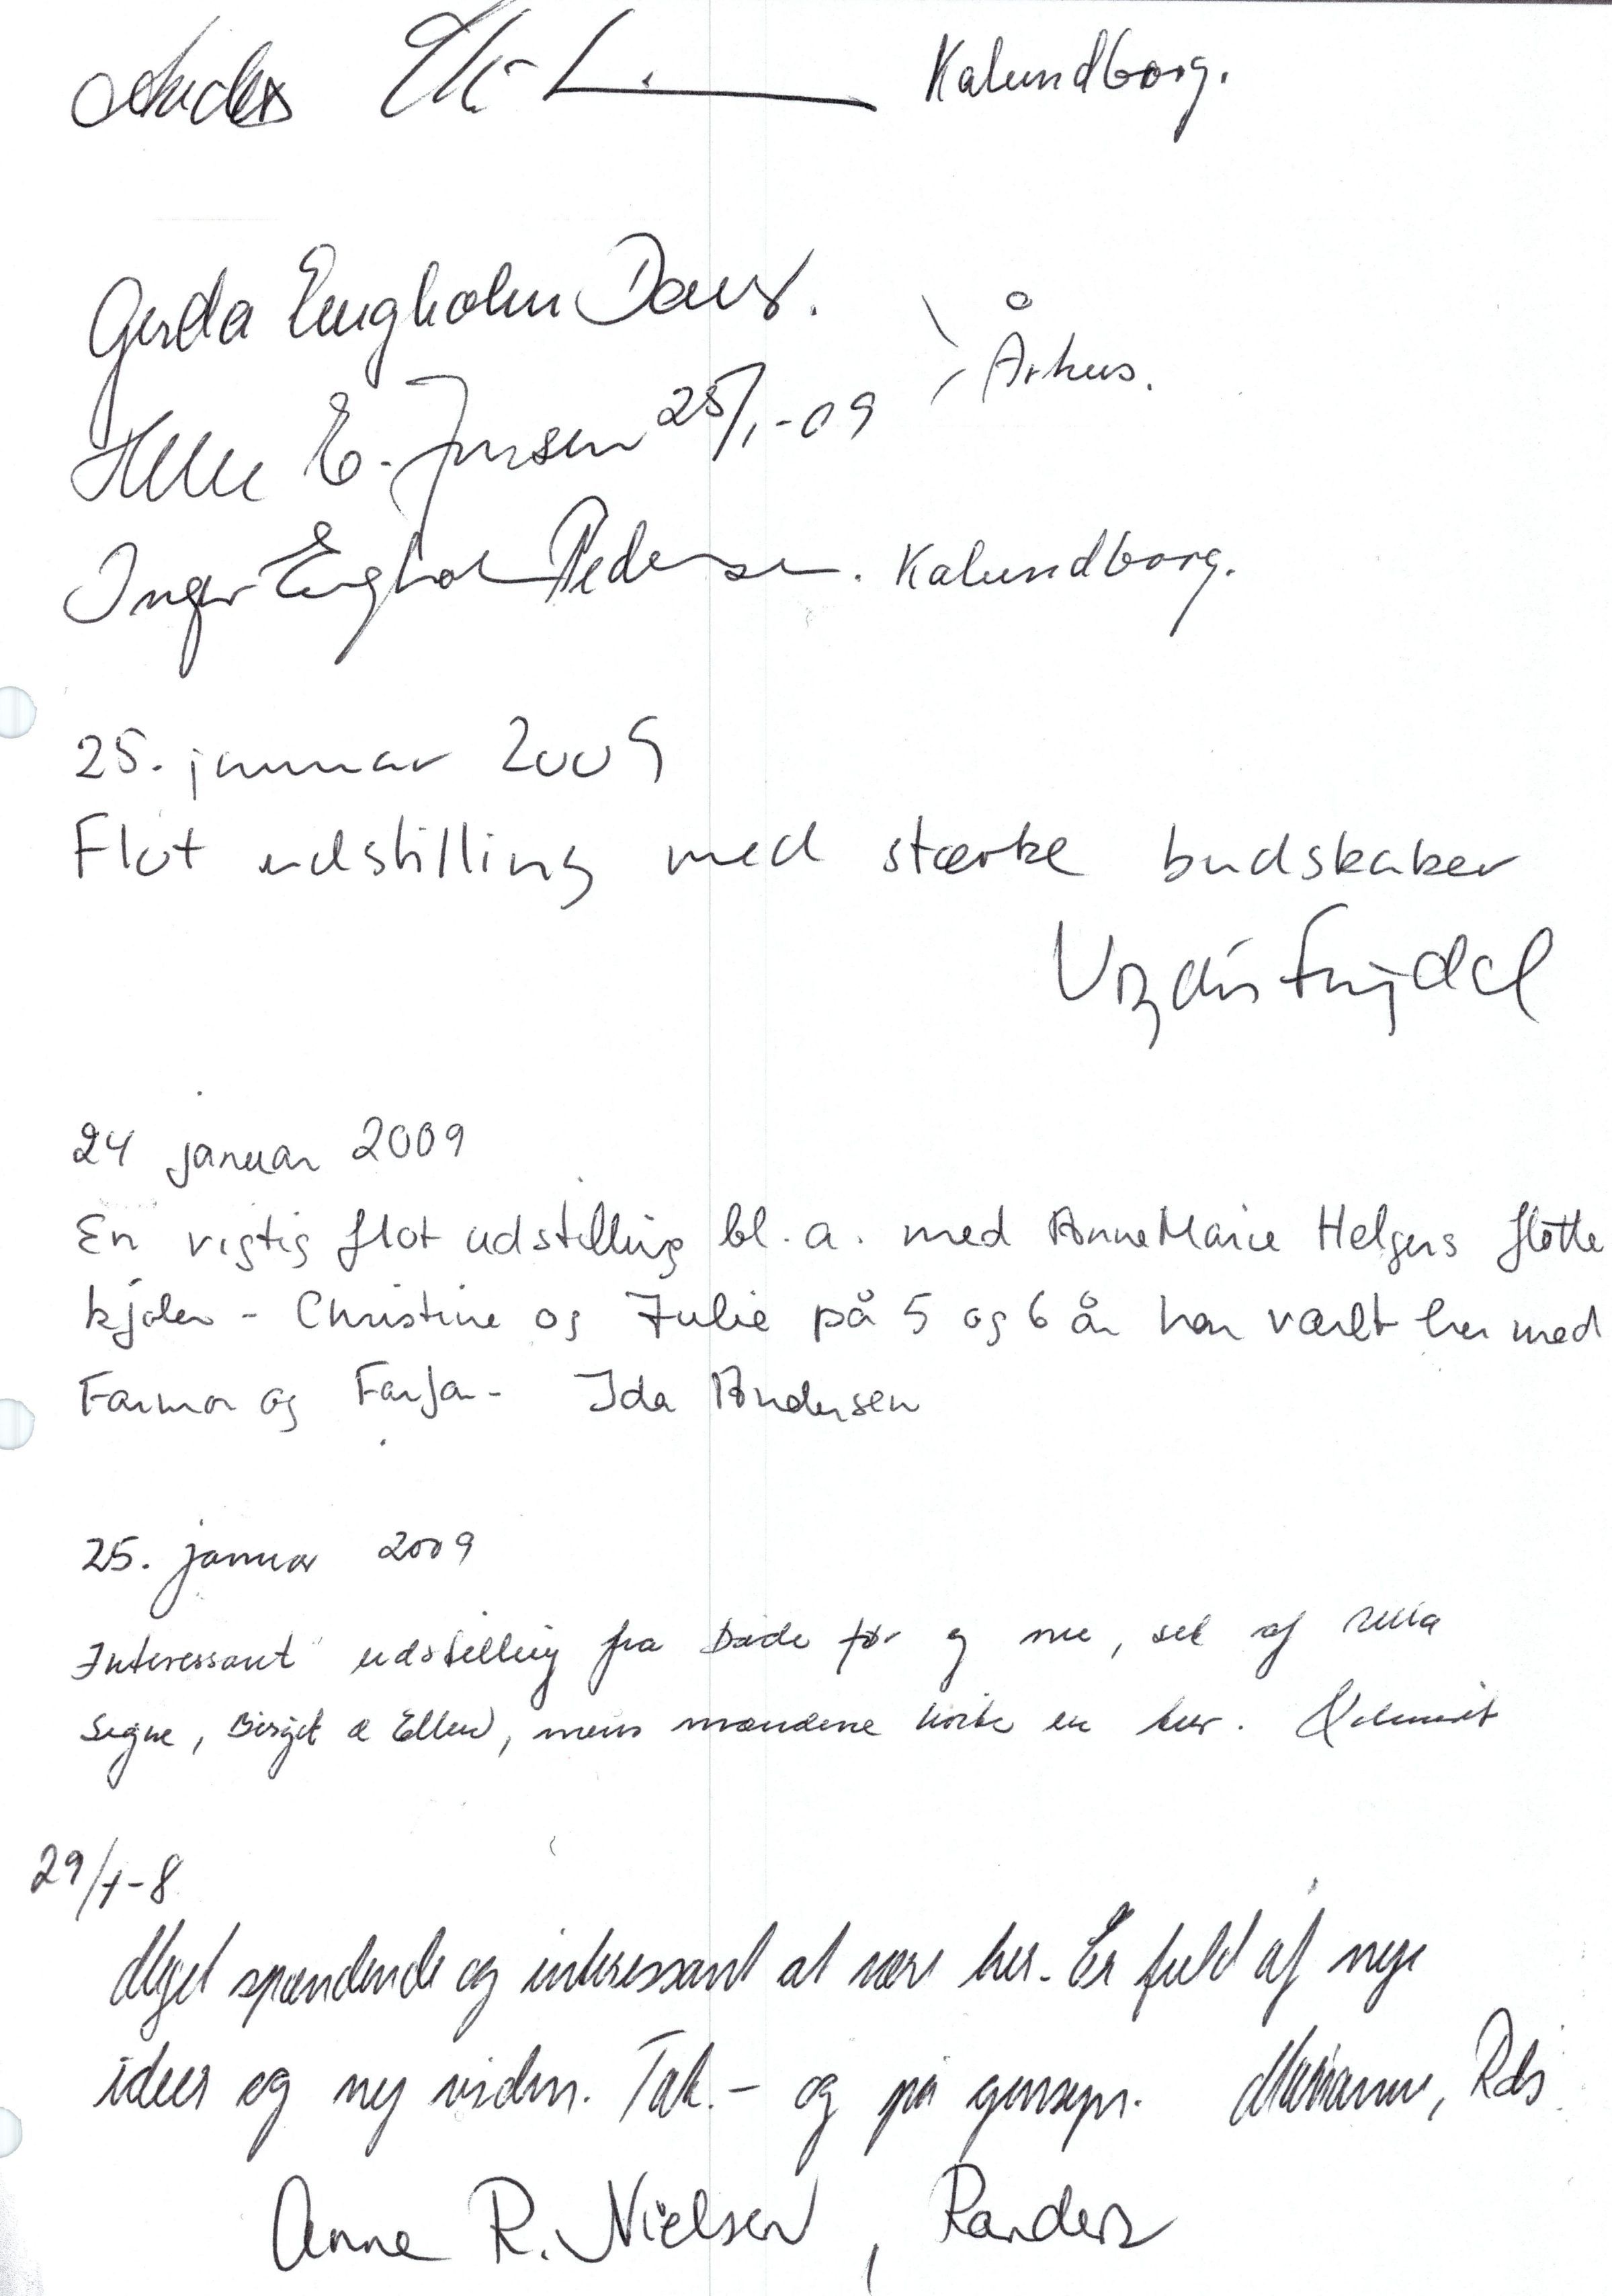 Anders Kalundborg.
Gerda Engholm Daus.
Århus.
Helle E. Jensen 25/1-09
Inger Engholm Pedersen. Kalundborg.
25. januar 2009
Flot udstilling med stærke budskaber
24 januar 2009
En vigtig flot udstilling bl.a. med AnneMarie Helgers flotte
kjoler - Christine og Julie på 5 og 6 år har været her med
Farmor og Farfar - Ida Andersen
25. januar 2009
Interessant udstilling fra både før og nu, set af Ulla
Signe, Birgit & Ellen, mens mændene hvite en tur.
29/1-8
Meget spændende og interessant at være her. Er fuld af nye
ideer og ny viden. Tak. - og på gensyn. Marianne, Rds
Anne R. Nielsen, Randers